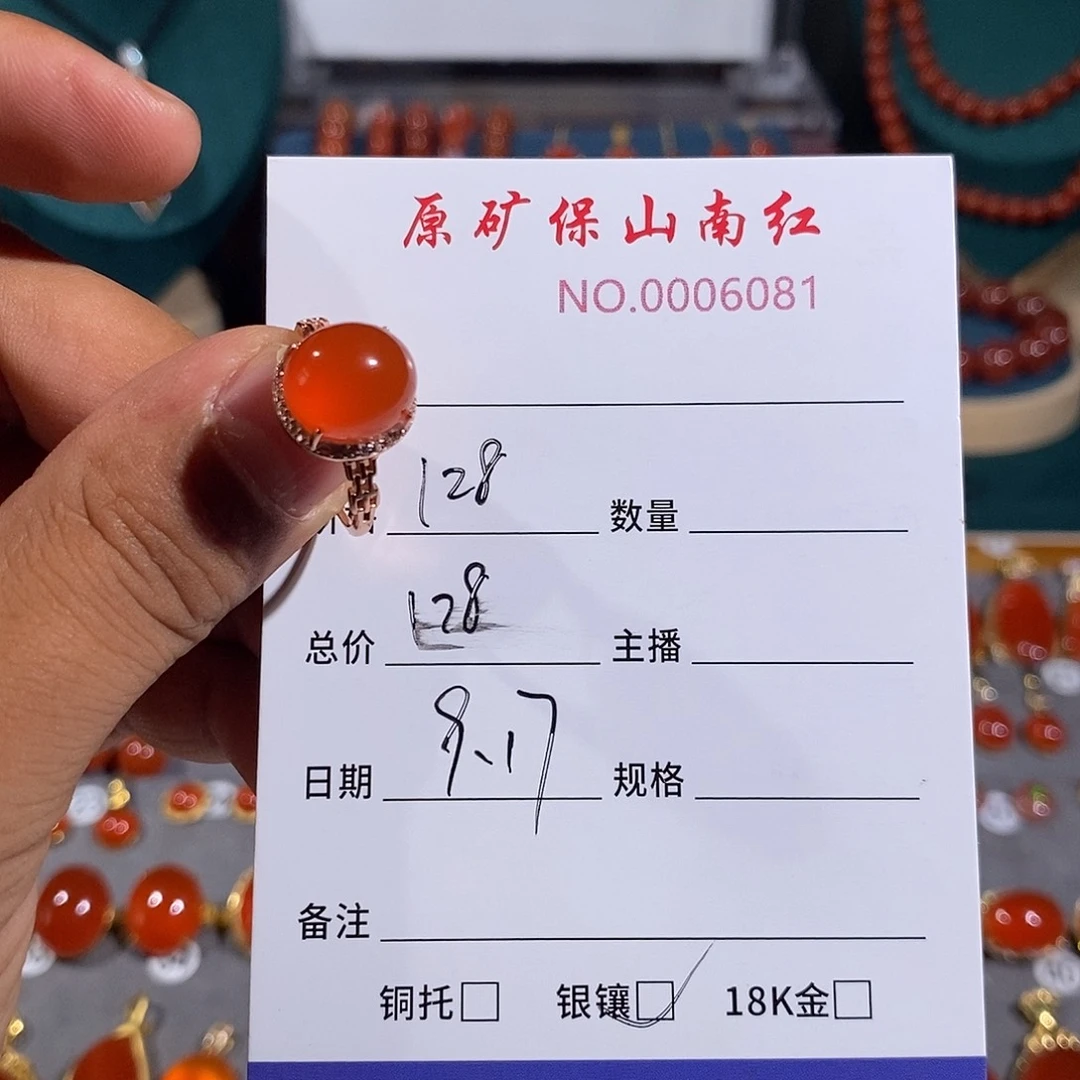 原矿保山南红
NO.0006081
128 数量
总价 128 主播
日期 9.17 规格
备注
铜托 银镶 18K金